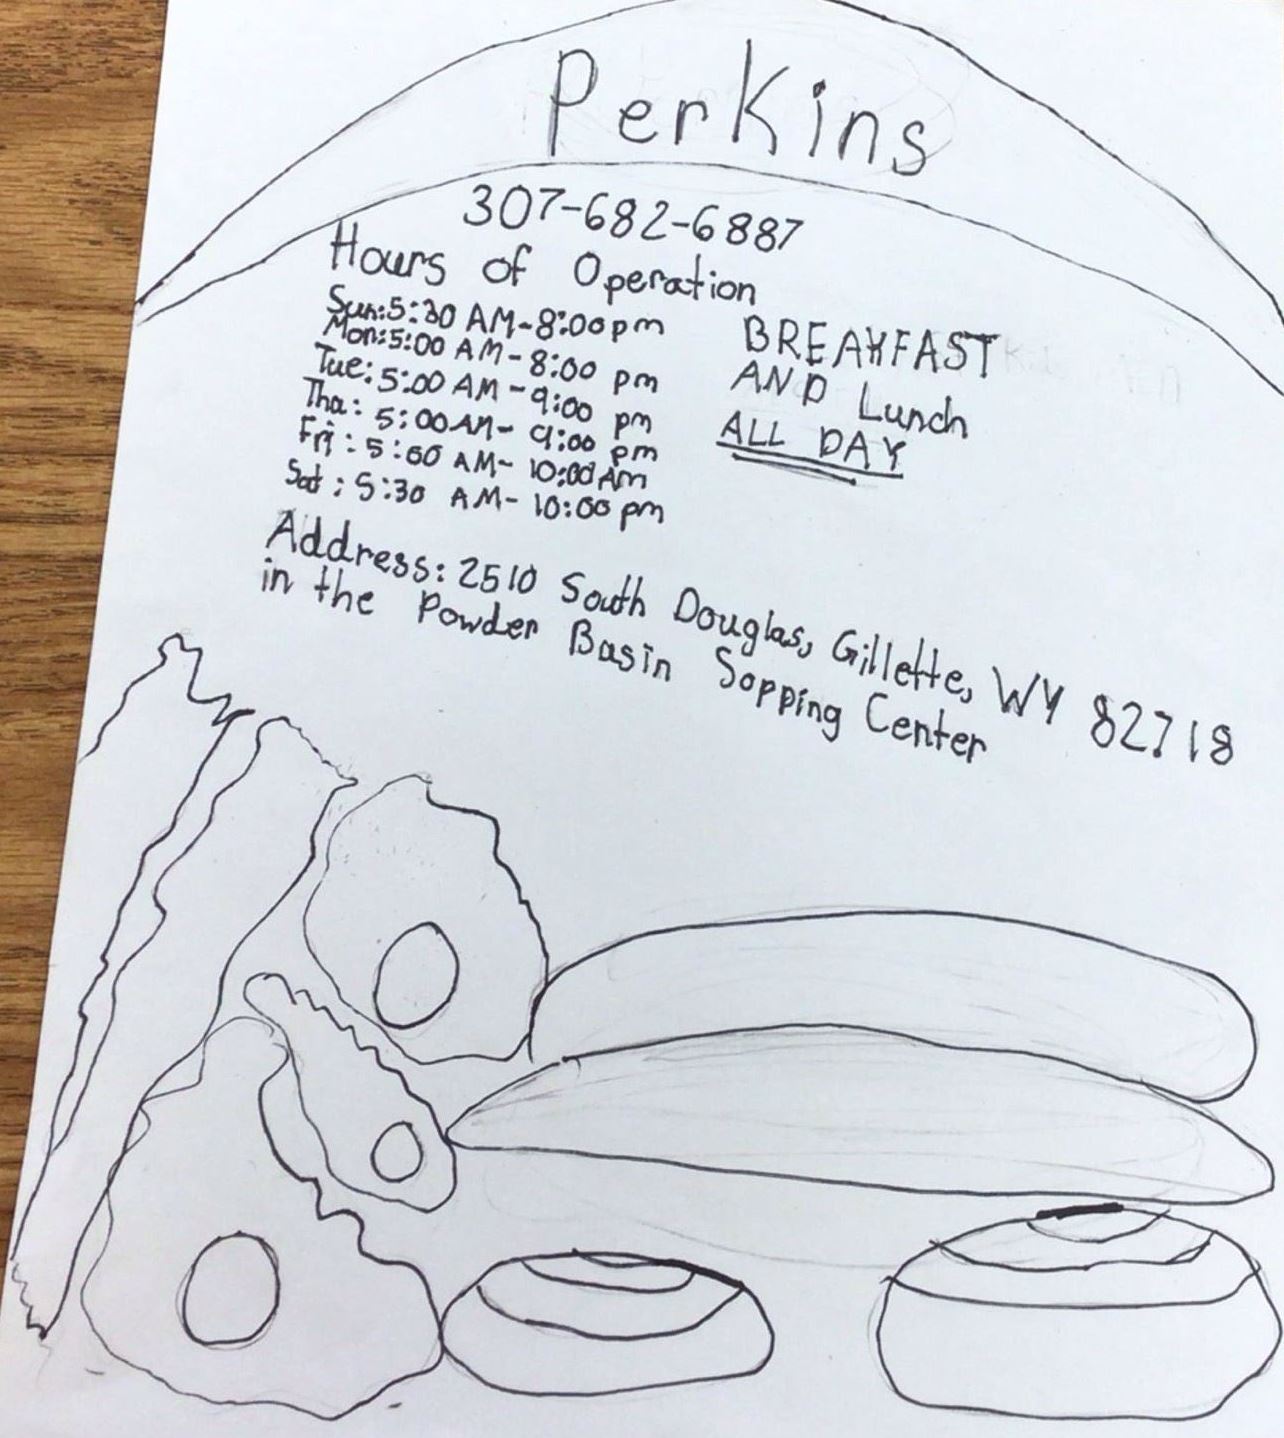 Perkins
307-682-6887
Hours of Operation
Sun: 5:30 AM-8:00pm
Mon: 5:00 AM-8:00 pm
Tue: 5:00 AM-9:00 pm
Thu: 5:00 AM-9:00 pm
Fri: 5:00 AM-10:00 Am
Sat: 5:30 AM-10:00 pm
BREAKFAST
AND Lunch
ALL DAY
Address: 2510 South Douglas, Gillette, WY 82718
in the Powder Basin Sopping Center